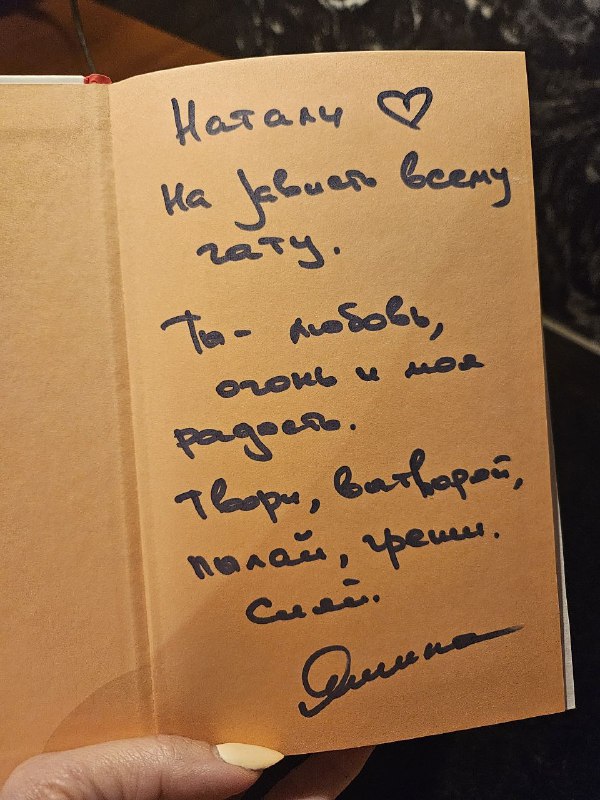 Натали ♡
На зависть всему
чату.
Ты - любовь,
огонь и моя
радость.
Твори, вытворяй,
пылай, греши.
Сияй.